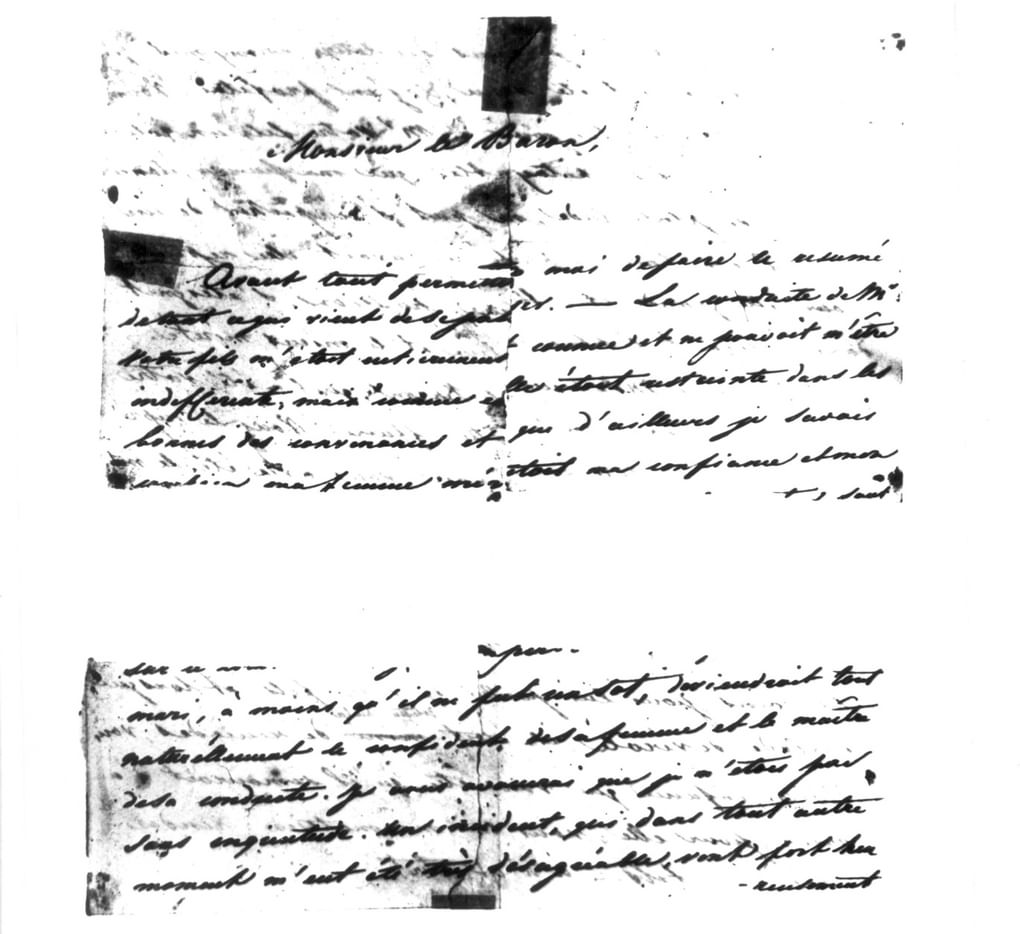 Monsieur le Baron,
Avant tout permettés moi de faire le resumé
de tout ce qui vient de se passer. — La conduite de Mr
votre fils m'étoit entièrement connue et ne pouvoit m'être
indifférente; mais comme elle étoit restreinte dans les
bornes des convenances et que d'ailleurs je savois
combien ma femme méritoit ma confiance et mon
sur ce
mari, à moins qu'il ne fut un sot, deviendroit tout
naturellement le confident de sa femme et le maître
de sa conduite. Je vous avouerai que je n'étois pas
sans inquiétude. Un incident, qui dans tout autre
moment m'eut été très désagréable, vint fort heu
-reusement